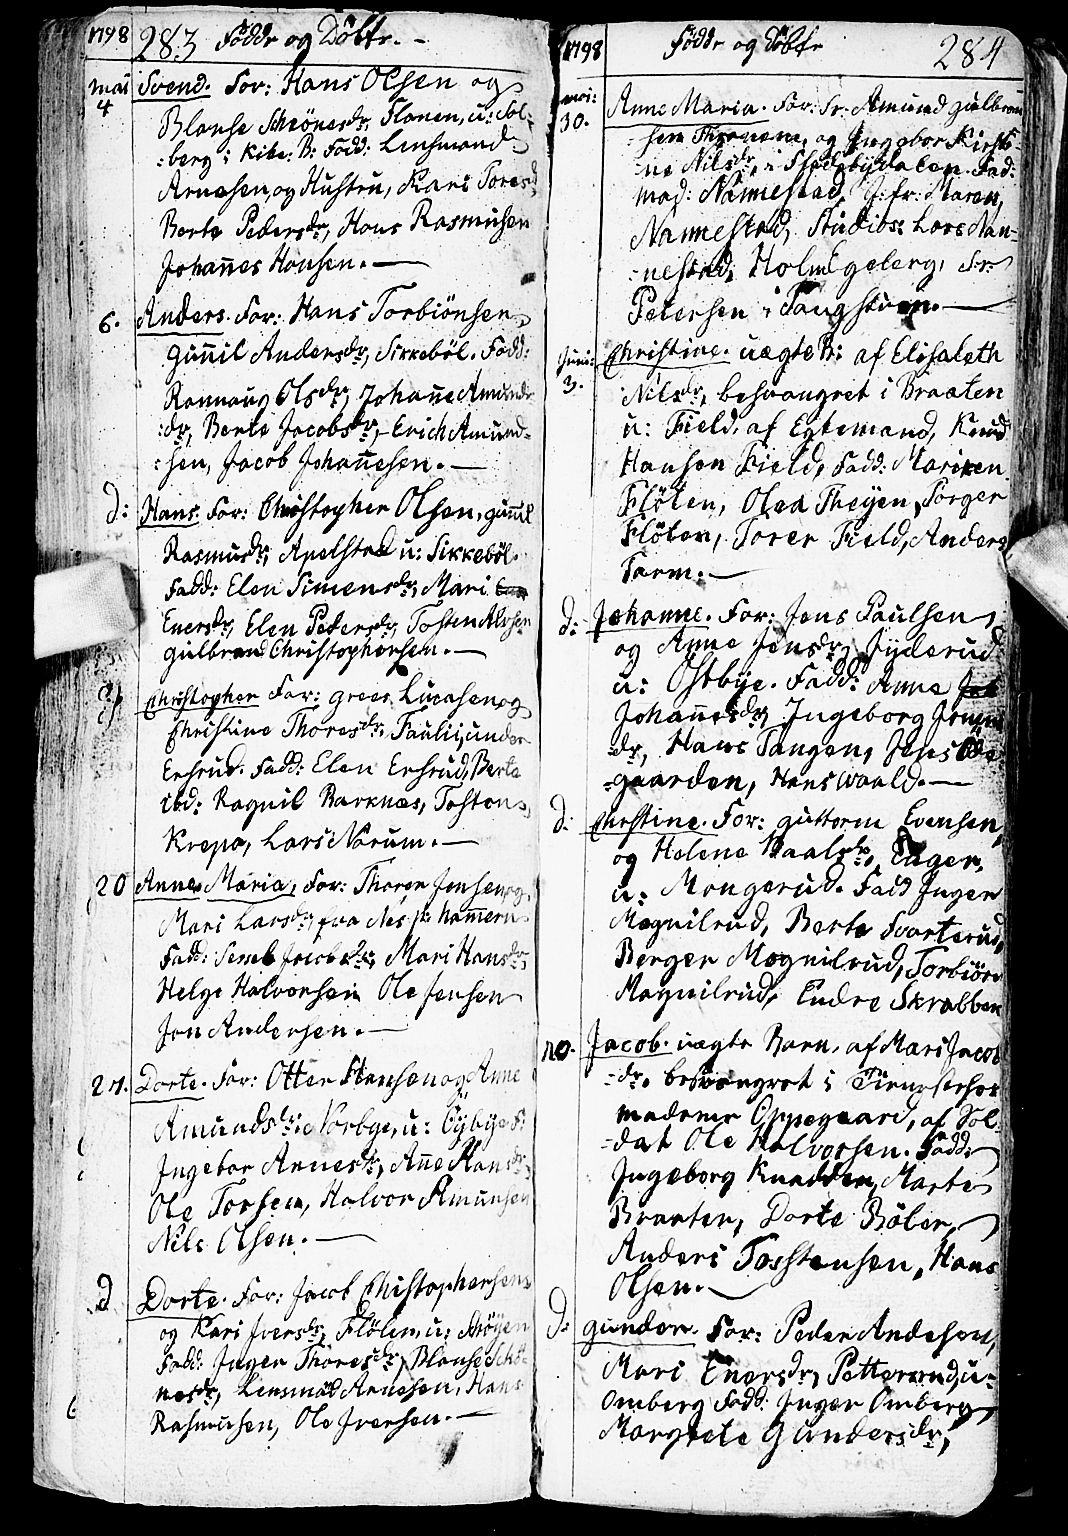 1798 283 Födde og Döbte. -
Mai 4 Svend. For: Hans Olsen og
Blanse Schönesdr, Flonen, u: Sol-
-berg i Kike: B: Fadd: Lensmand
Arnesen, og Hustru, Kari Toresd
Berte Pedersdr, Hans Rasmusen
Johannes Hansen. —
6. Anders. For: Hans Torbiönsen
Gunnil Andersdr, Sikkeböl. Fadd:
Rannaug Olsdr, Johanne Amunds
:dr, Berte Jacobsdr, Erich Amund-
:sen, Jacob Johannesen. —
d: Hans. For: Christopher Olsen, gunnil
Rasmusdr, Apelstad u: Sikkeböl.
Fadd: Elen Simensdr, Mari
Enersdr, Elen Pedersdr, Tosten Alvsen
Gulbrand Christophersen. —
Christopher For: grees Lucasen og
Christine Thoresdr. Faulii, under
Ershrud. Fadd: Elen Ershrud, Berte
ibd: Ragnil Barknæs, Tosten
Krepa, Lars Narum. —
20 Anne Maria, For: Thorer Jensen og
Mari Larsdr, fra Nes p: hammern
Fadd: Jacobsdr, Mari Hansdr,
Helge Halvorsen Ole Jensen
Jon Andersen. —
27. Dorte. For: Otter Hansen og Anne
Amundsdr: Norbye, u: Öybye F:
Ingebor Arnesdr, Anne Hansdr,
Ole Torsen, Halvor Amunsen
Nils Olsen. —
d Dorte. For: Jacob Christophersen
og Kari Iversdr, Flölen, u: Schöyen
Fadd: Inger Thoresdr, Blanse Schö-
nesdr, Linsmad Arnesen, Hans
Rasmusen, Ole Iversen. —
1798 Födde og Döbte 284
mai: 30. Anne Maria. For: Sr. Amund Gulbran
sen Thronem, og Ingebor Kirsti-
ne Nilsdr, i Fladebydalen. Fad:
mad: Nannestad, J: fr: Maren,
Nannestad, Studios: Lars Nan-
-nestad, Holm Egeberg, Sr.
Petersen i Tangstuen. —
Juni: 3. Christine. uægte B: af Elisabeth
Nilsdr, besvangret i Braaten
u: Field. af Egtemand, Knud
Hansen Field, Fadd: Mariken
Flöten, Olea Theyen, Torger
Flöten, Torer Field, Anders
Tarm. —
d: Johanne. For: Jens Paulsen,
og Anne Jensdr, Jyderud
u: Östbye. Fadd: Anne
Johannesdr, Ingeborg Jens
dr, Hans Tangen, Jens Öde-
gaarden, Hans Waald. —
d: Christine. For: guttorm Evensen,
og Helene Paalsdr, Enger,
u: Mongerud. Fadd Inger
Mognilrud, Berte Svarterud,
Berger Mognilrud, Torbiörn
Mognilrud, Endre Skrabben
10. Jacob. uægte Barn, af Mari Jacob
-dr. besvangret i Tieneste hos
madame Oppegaard, af Sol-
-dat Ole Halvorsen. Fadd:
Ingeborg Knadden, Marte
Braaten, Dorte Böler,
Anders Tosstensen, Hans
Olsen. —
d: gunder. For: Peder Andesen,
Mari Enersdr, Petterrud, u:
Omberg Fadd: Inger Omberg
Margrete Gundersdr,